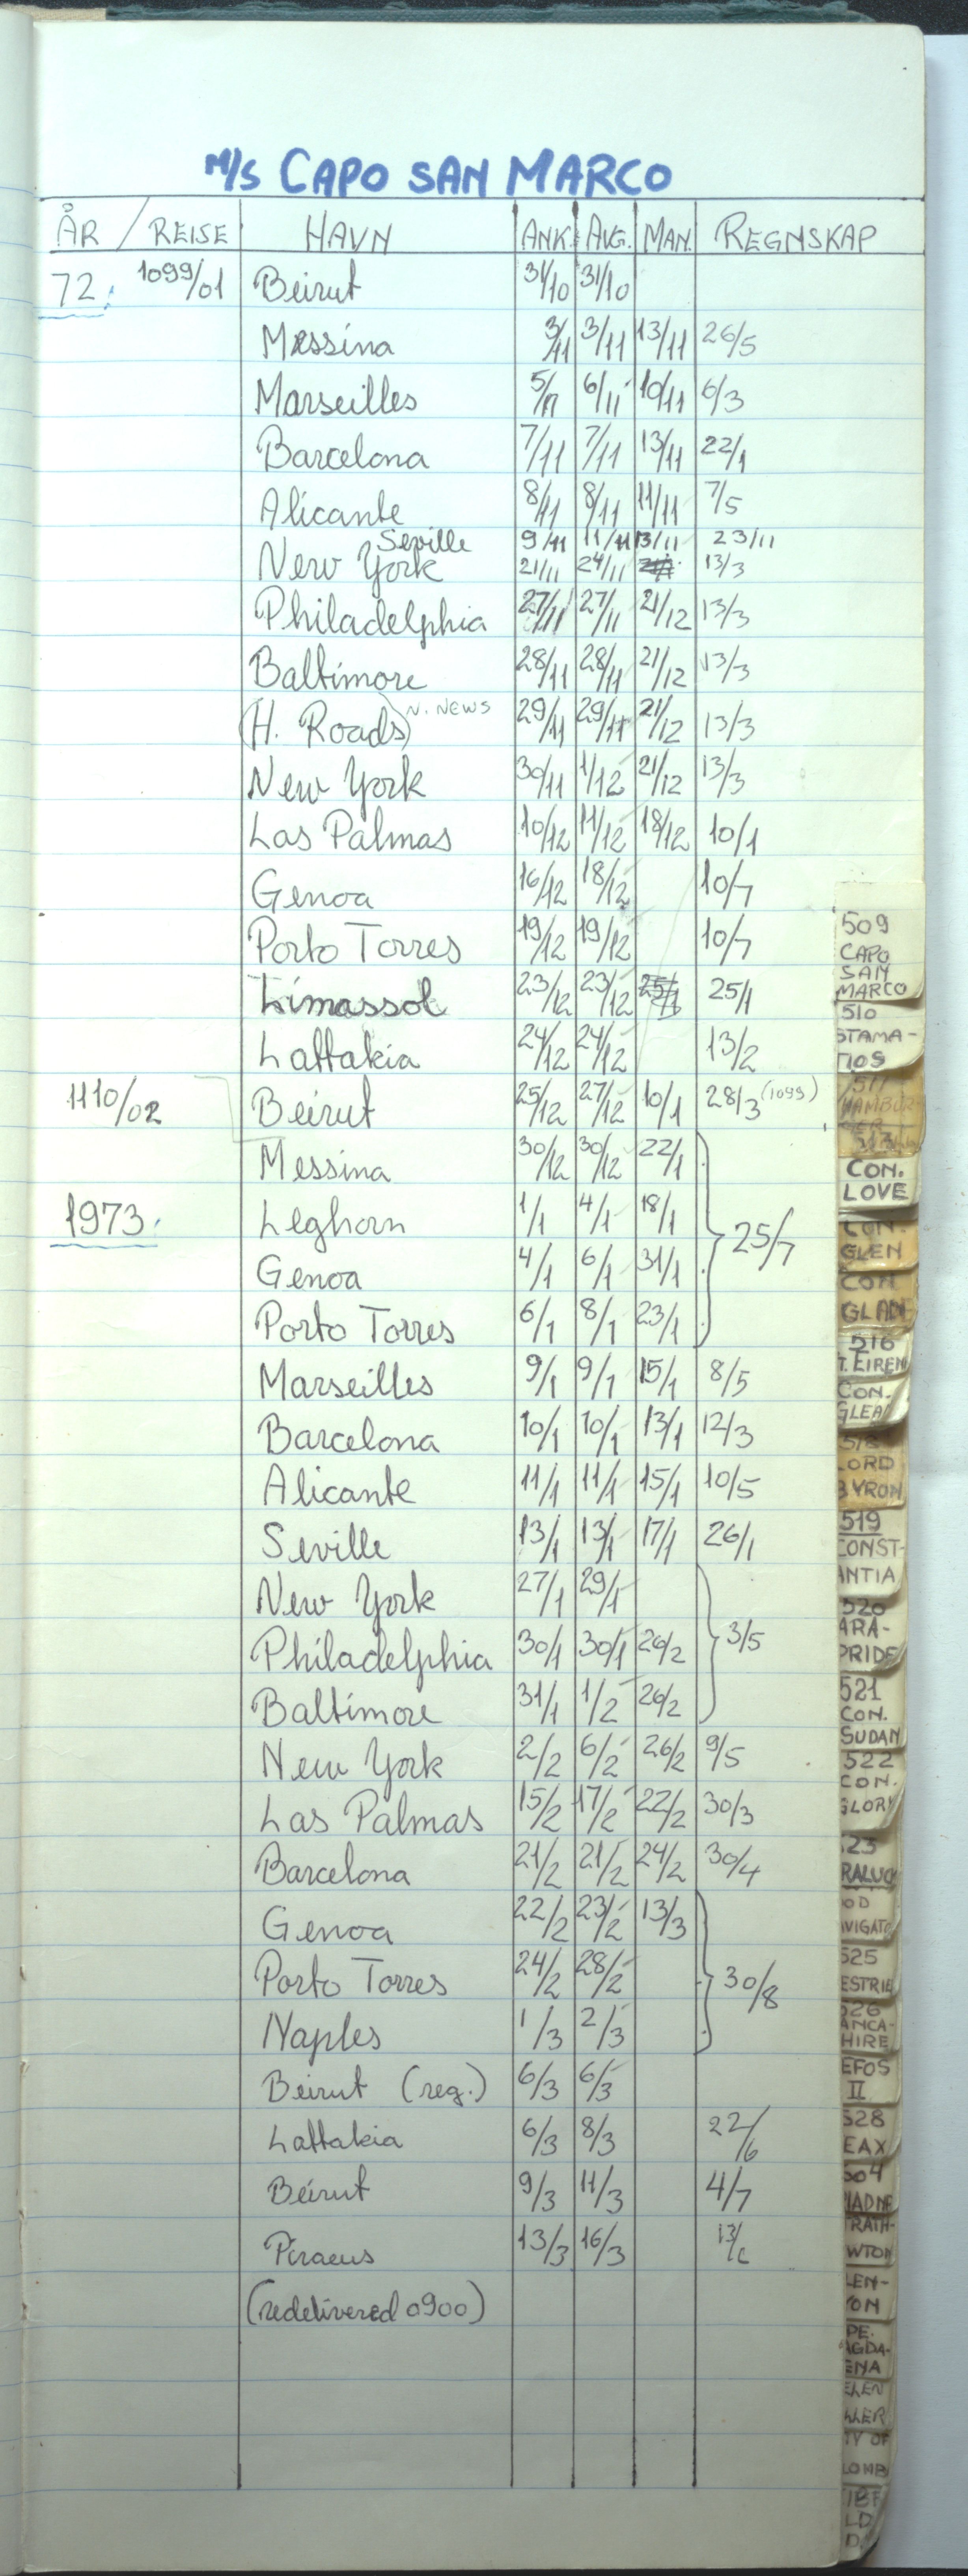 M/S CAPO SAN MARCO
ÅR / REISE HAVN ANK. AVG. MAN. REGNSKAP
72. 1099/01 Beirut 31/10 31/10
Messina 3/11 3/11 13/11 26/5
Marseilles 5/11 6/11 10/11 6/3
Barcelona 7/11 7/11 13/11 22/1
Alicante 8/11 8/11 11/11 7/5
Seville 9/11 11/11 13/11 23/11
New York 21/11 24/11 13/3
Philadelphia 27/11 27/11 21/12 13/3
Baltimore 28/11 28/11 21/12 13/3
(H. Roads) N. NEWS 29/11 29/11 21/12 13/3
New York 30/11 1/12 21/12 13/3
Las Palmas 10/12 11/12 18/12 10/1
Genoa 16/12 18/12 10/7
Porto Torres 19/12 19/12 10/7
Limassol 23/12 23/12 25/1 25/1
Lattakia 24/12 24/12 13/2
1110/02 Beirut 25/12 27/12 10/1 28/3 (1099)
Messina 30/12 30/12 22/1
1973. Leghorn 1/1 4/1 18/1 25/7
Genoa 4/1 6/1 31/1
Porto Torres 6/1 8/1 23/1
Marseilles 9/1 9/1 15/1 8/5
Barcelona 10/1 10/1 13/1 12/3
Alicante 11/1 11/1 15/1 10/5
Seville 13/1 13/1 17/1 26/1
New York 27/1 29/1
Philadelphia 30/1 30/1 26/2 3/5
Baltimore 31/1 1/2 26/2
New York 2/2 6/2 26/2 9/5
Las Palmas 15/2 17/2 22/2 30/3
Barcelona 21/2 21/2 24/2 30/4
Genoa 22/2 23/2 13/3
Porto Torres 24/2 28/2 30/8
Naples 1/3 2/3
Beirut (reg.) 6/3 6/3
Lattakia 6/3 8/3 22/6
Beirut 9/3 11/3 4/7
Piraeus 13/3 16/3 13/6
(redelivered 0900)
509
CAPO
SAN
MARCO
510
STAMA-
TIOS
511
HAMBUR
GER
CON.
LOVE
CON.
GLEN
CON
GLAD
516
T. EIREN
CON.
GLEA
518
LORD
BYRON
519
CONST-
ANTIA
520
ARA-
PRIDE
521
CON.
SUDAN
522
CON.
GLORY
23
RALUCK
OD
AVIGATO
525
ESTRIE
526
ANCA-
HIRE
EFOS
II
528
EAX
504
IADNE
TRATH-
WTON
LEN-
ON
PE.
AGDA-
ENA
ELEN
LLER
TY OF
LOMB
LD
D.